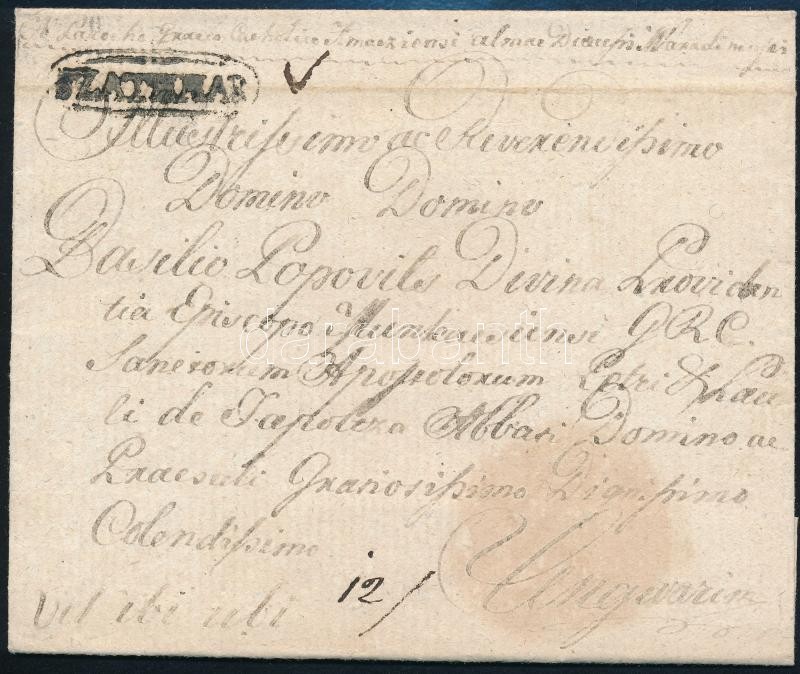 Parocho Graeco Catholico Imreziensi almae Diaecesis
SZATHMAR
Illustrissimo ac Reverendissimo
Domino Domino
Basilio Popovits Divina Providen
tia Episcopo Munkacsiensi G R C.
Sanctorum Apostolorum Petri & Pau
li de Tapolcza Abbati Domino ac
Praesuli Gratiosissimo Dignissimo
Colendissimo
12/
Ungvarini
Vel ibi ubi
darabanth